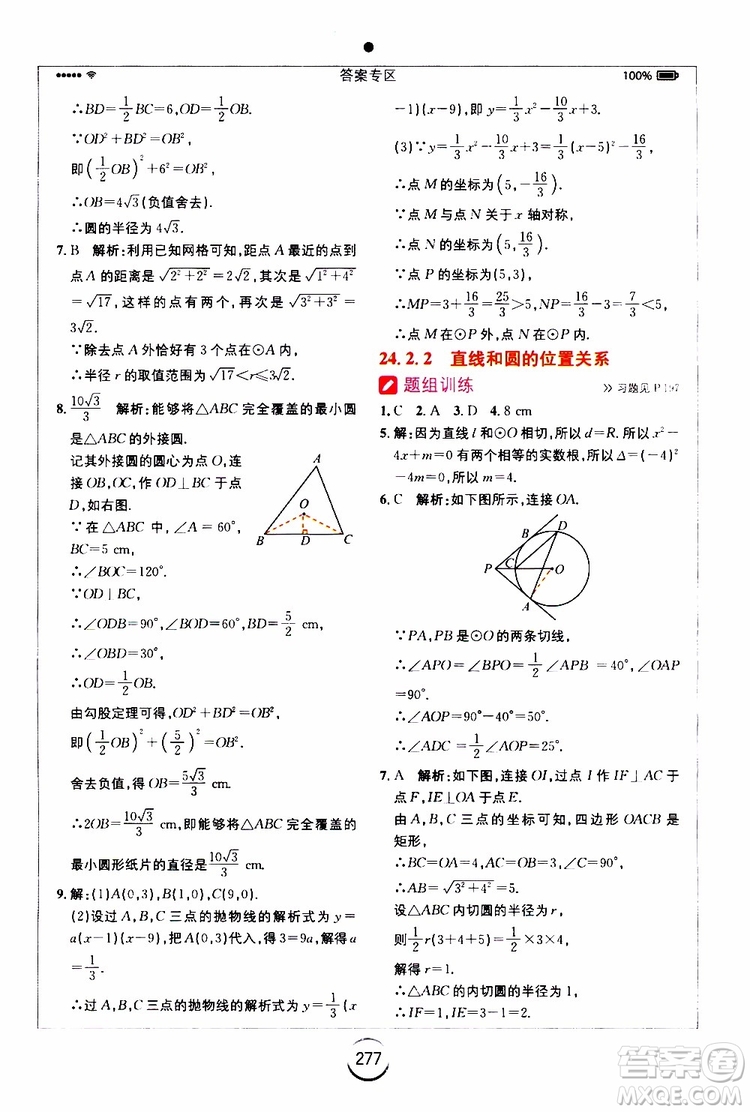 答案专区
100%
∴BD=1/2BC=6,OD=1/2OB.
∵OD²+BD²=OB²,
即(1/2OB)²+6²=OB²,
∴OB=4√3(负值舍去).
∴圆的半径为4√3.
7. B 解析:利用已知网格可知,距点A最近的点到
点A的距离为√(2²+2²)=2√2,其次是√(1²+4²)
=√17,这样的点有两个,再次是√(3²+3²)=
3√2.
∵除去点A外恰好有三个在⊙A内,
∴半径r的取值范围为√17<r≤3√2.
8. 10√3/3 解析:能够将△ABC完全覆盖的最小圆
是△ABC的外接圆.
记其外接圆的圆心为点O,连
接OB,OC,作OD⊥BC于点
D,如右图.
∵在△ABC中,∠A=60°,
BC=5 cm,
∴∠BOC=120°.
∵OD⊥BC,
∴∠ODB=90°,∠BOD=60°,BD=5/2 cm.
∴∠OBD=30°,
∴OD=1/2OB.
由勾股定理可得,OD²+BD²=OB²,
即(1/2OB)²+(5/2)²=OB²,
舍去负值,得OB=5√3/3 cm.
∴2OB=10√3/3 cm,即能够将△ABC完全覆盖的
最小圆形纸片的直径是10√3/3 cm.
9. 解:(1)A(0,3),B(1,0),C(9,0).
(2)设过A,B,C三点的抛物线的解析式为y=
a(x-1)(x-9),把A(0,3)代入,得3=9a,解得a
=1/3.
∴过A,B,C三点的抛物线的解析式为y=1/3(x
-1)(x-9),即y=1/3x²-10/3x+3.
(3)∵y=1/3x²-10/3x+3=1/3(x-5)²-16/3,
∴点M的坐标为(5,-16/3).
∵点M与点N关于x轴对称,
∴点N的坐标为(5,16/3).
∵点P的坐标为(5,3),
∴MP=3+16/3=25/3>5,NP=16/3-3=7/3<5,
∴点M在⊙P外,点N在⊙P内.
24.2.2 直线和圆的位置关系
题组训练
>> 习题见P197
1. C 2. A 3. D 4. 8 cm
5. 解:因为直线l和⊙O相切,所以d=R.所以x²-
4x+m=0有两个相等的实数根,所以Δ=(-4)²
-4m=0,解得m=4.
6. C 解析:如下图所示,连接OA.
∵PA,PB是⊙O的两条切线,
∴∠APO=∠BPO=1/2∠APB=40°,∠PAO
=90°.
∴∠AOP=90°-∠APO=50°.
∴∠ADC=1/2∠AOP=25°.
7. A 解析:如下图,连接OI,过点I作IF⊥AC于
点F,IE⊥OA于点E.
由A,B,C三点的坐标可知,四边形OACB是
矩形,
∴BC=OA=4,AC=OB=3.
∴AB=√(3²+4²)=5.
设△ABC内切圆的半径为r,
则1/2r(3+4+5)=1/2×3×4,
解得r=1.
∴△ABC的内切圆的半径为1,
∴IF=1,IE=3-1=2.
A
O
B
D
C
B
D
P
C
O
A
277
答案圈
MXQE.COM